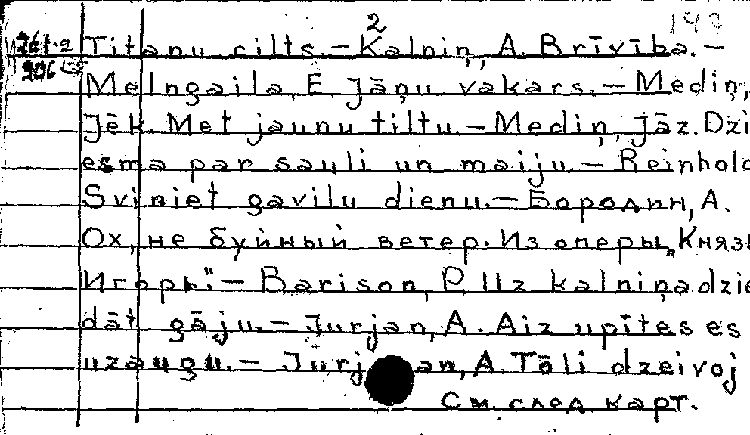 2
Titanu cilts.-Kalniņ, A. Brīvība.-
Melngaila, E Jāņu vakars.-Mediņ,
Jēk. Met jaunu tiltu-Mediņ, Jāz. Dzi
esma par sauli un maiju.-Reinhold
Sviniet gavilu dienu.-Бородин, А.
Ох, не буйный ветер. Из оперы „Князь
Игорь".-Barison, P. Uz kalniņa dzie
dāt gāju.-Jurjan, A. Aiz upītes es
uzaugu.-Jurjan, A. Tāli dzeivoj
См. след карт.